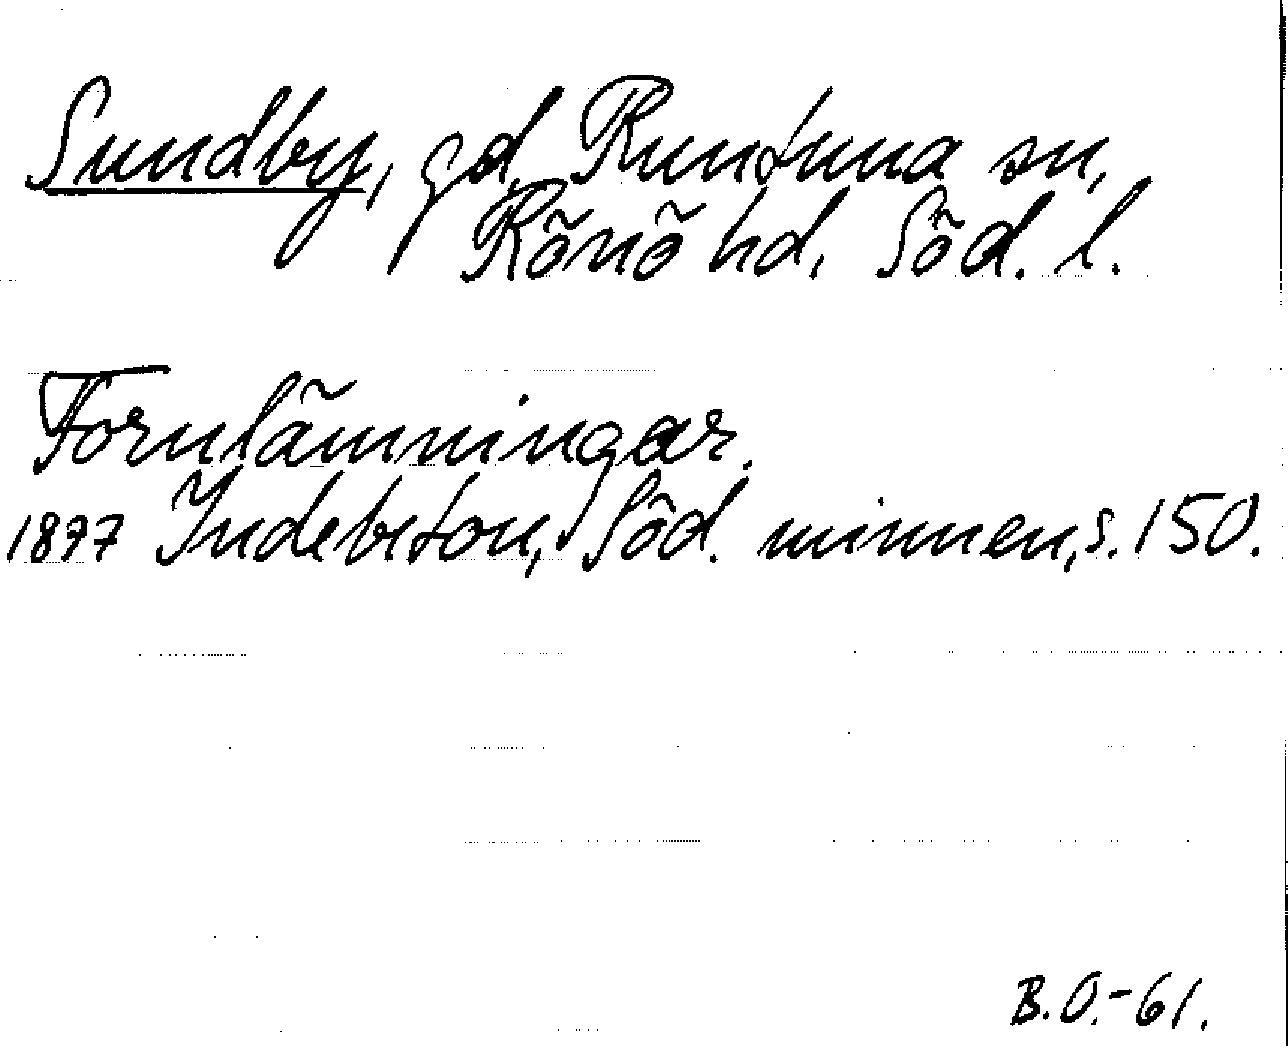 Sundby, gd, Runtuna sn,
Rönö hd, Söd. l.
Fornlämningar.
1877 Indebetou, Söd. minnen, s. 150.
B.O.-61.